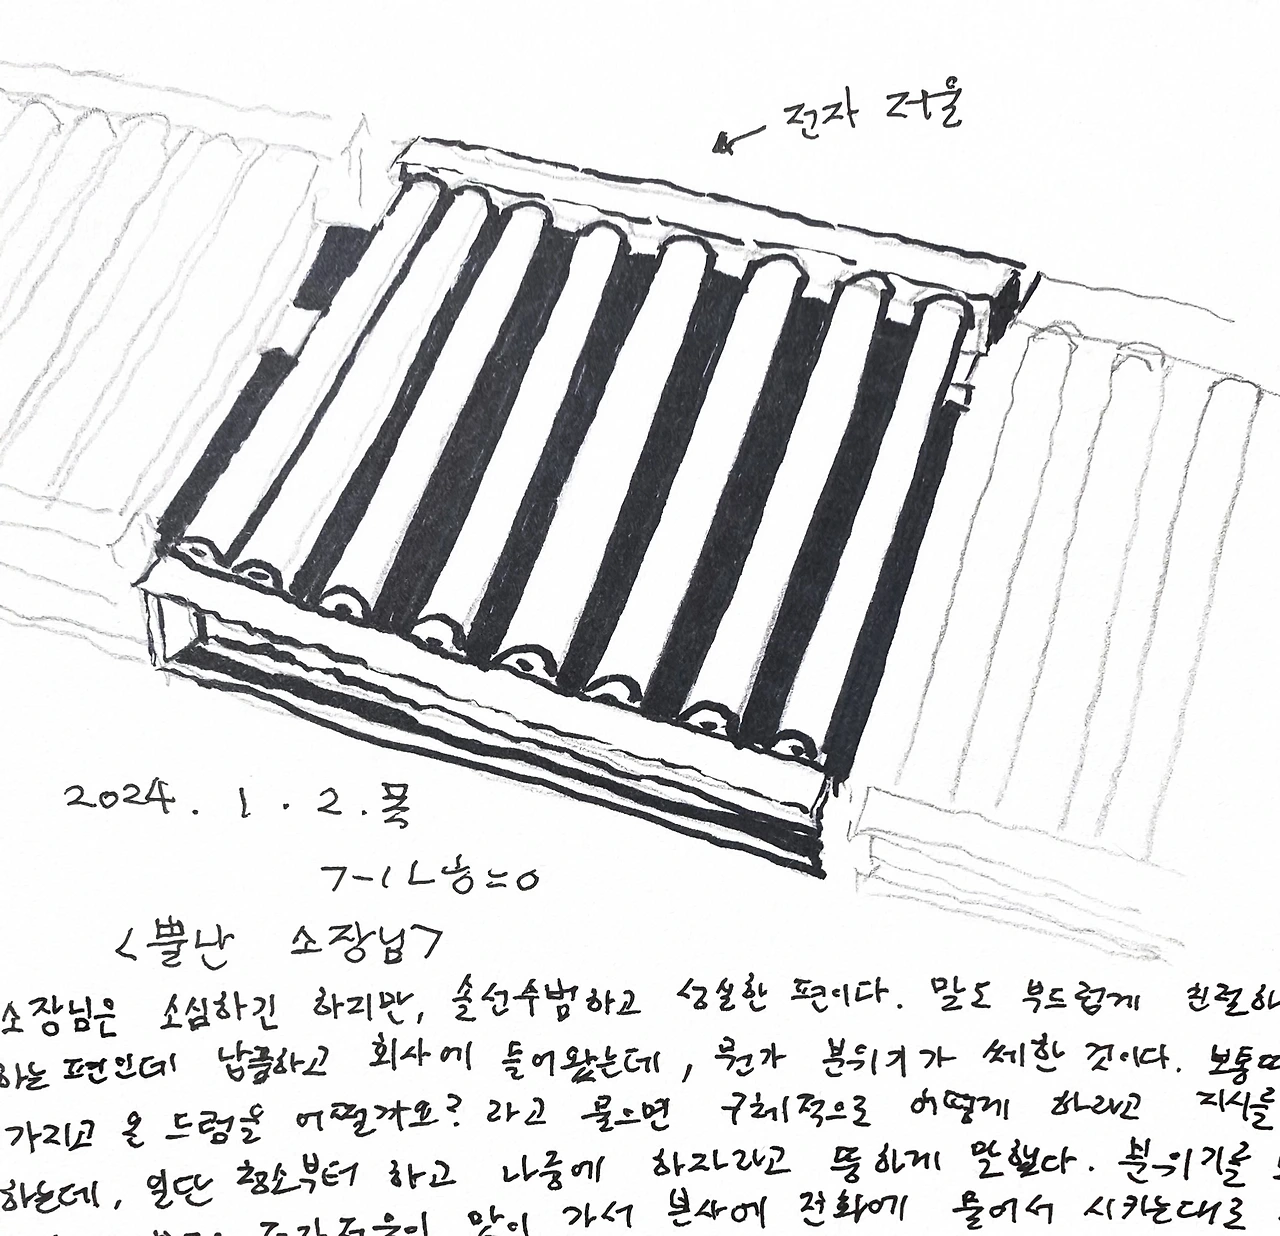 전자 저울
2024. 1. 2. 목
<뿔난 소장님>
소장님은 소심하긴 하지만, 솔선수범하고 성실한 편이다. 말도 부드럽게 친절하
하는 편인데 납품하고 회사에 들어왔는데, 뭔가 분위기가 쎄한 것이다. 보통
가지고 온 드럼을 어떨까요? 라고 물으면 구체적으로 어떻게 하라고 지시를
하는데, 일단 청소부터 하고 나중에 하자라고 뚱하게 말했다. 분위기를
많이 가서 본사에 전화에 물어서 시키는대로